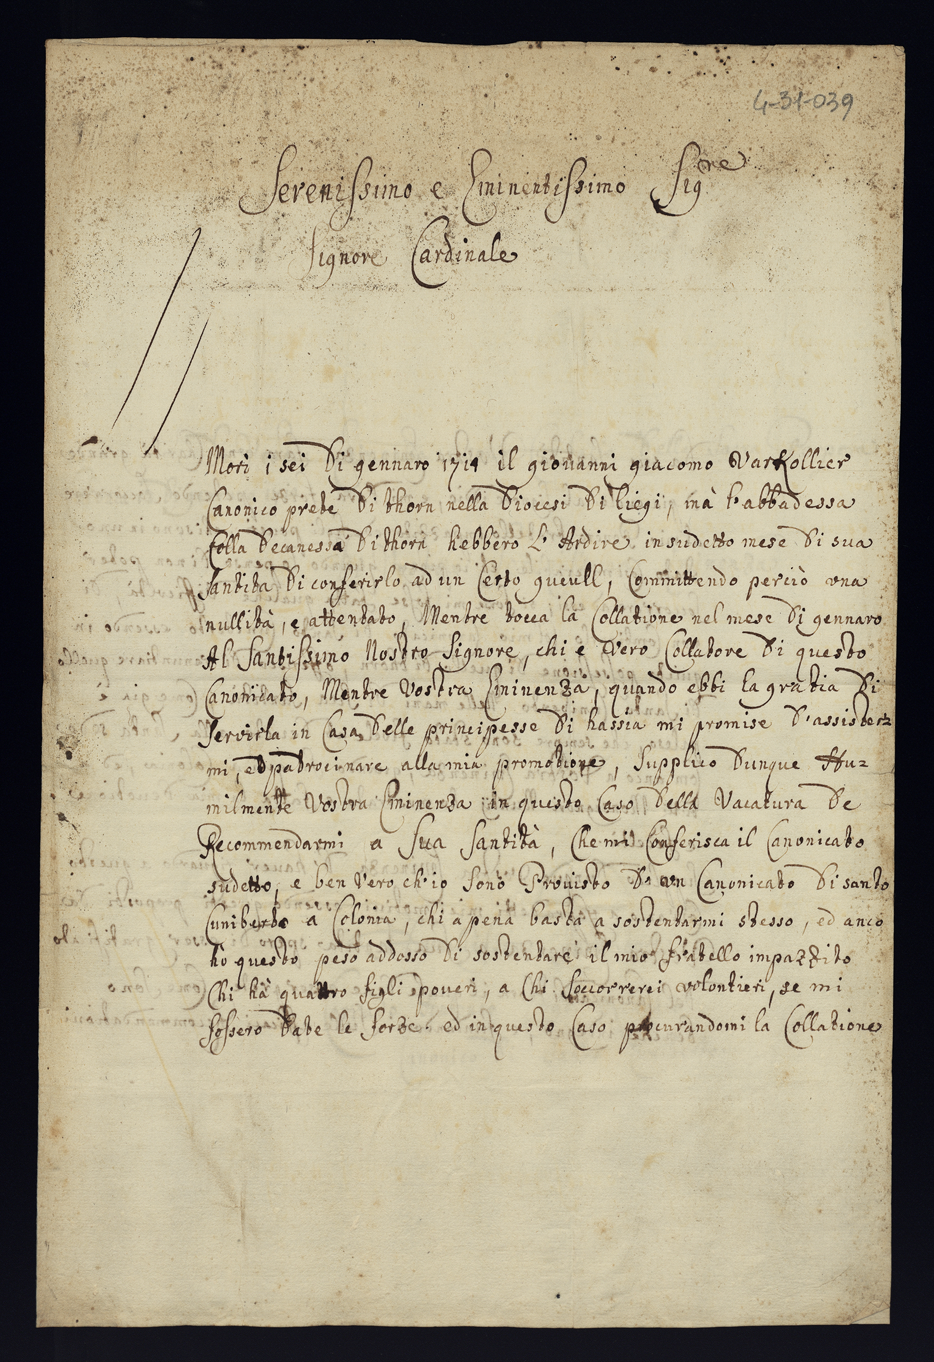 4-31-039
Serenissimo e Eminentissimo Sig.re
Signore Cardinale
Mori i sei di gennaro 1714 il giovanni giacomo Varkollier
Canonico prete di thorn nella diocesi di liegi, mà l'abbadessa
Colla decanessa di thorn hebbero l'Ardire in sudetto mese di sua
santità di conferirlo ad un Certo gueull, Committendo perciò una
nullità, e attentato, Mentre tocca la Collatione nel mese di gennaro
Al Santissimo Nostro Signore, chi è vero Collatore di questo
Canonicato, Mentre Vostra Eminenza, quando ebbi la gratia di
servirla in Casa delle principesse di hassia mi promise d'assister
mi, ed patrocinare alla mia promotione, supplico dunque Hu-
milmente Vostra Eminenza in questo Caso della Vacatura de
Recommendarmi a Sua Santità, Che mi Conferisca il Canonicato
sudetto, e ben vero ch'io sono Provisto d'un Canonicato di santo
Cuniberto a Colonia, chi apena basta a sostentarmi stesso, ed anco
ho questo peso addosso di sostentare il mio fratello impazzito
Chi hà quattro figli poveri, a Chi soccorrerei volontieri, se mi
fossero date le forze. ed in questo Caso procurandomi la Collatione